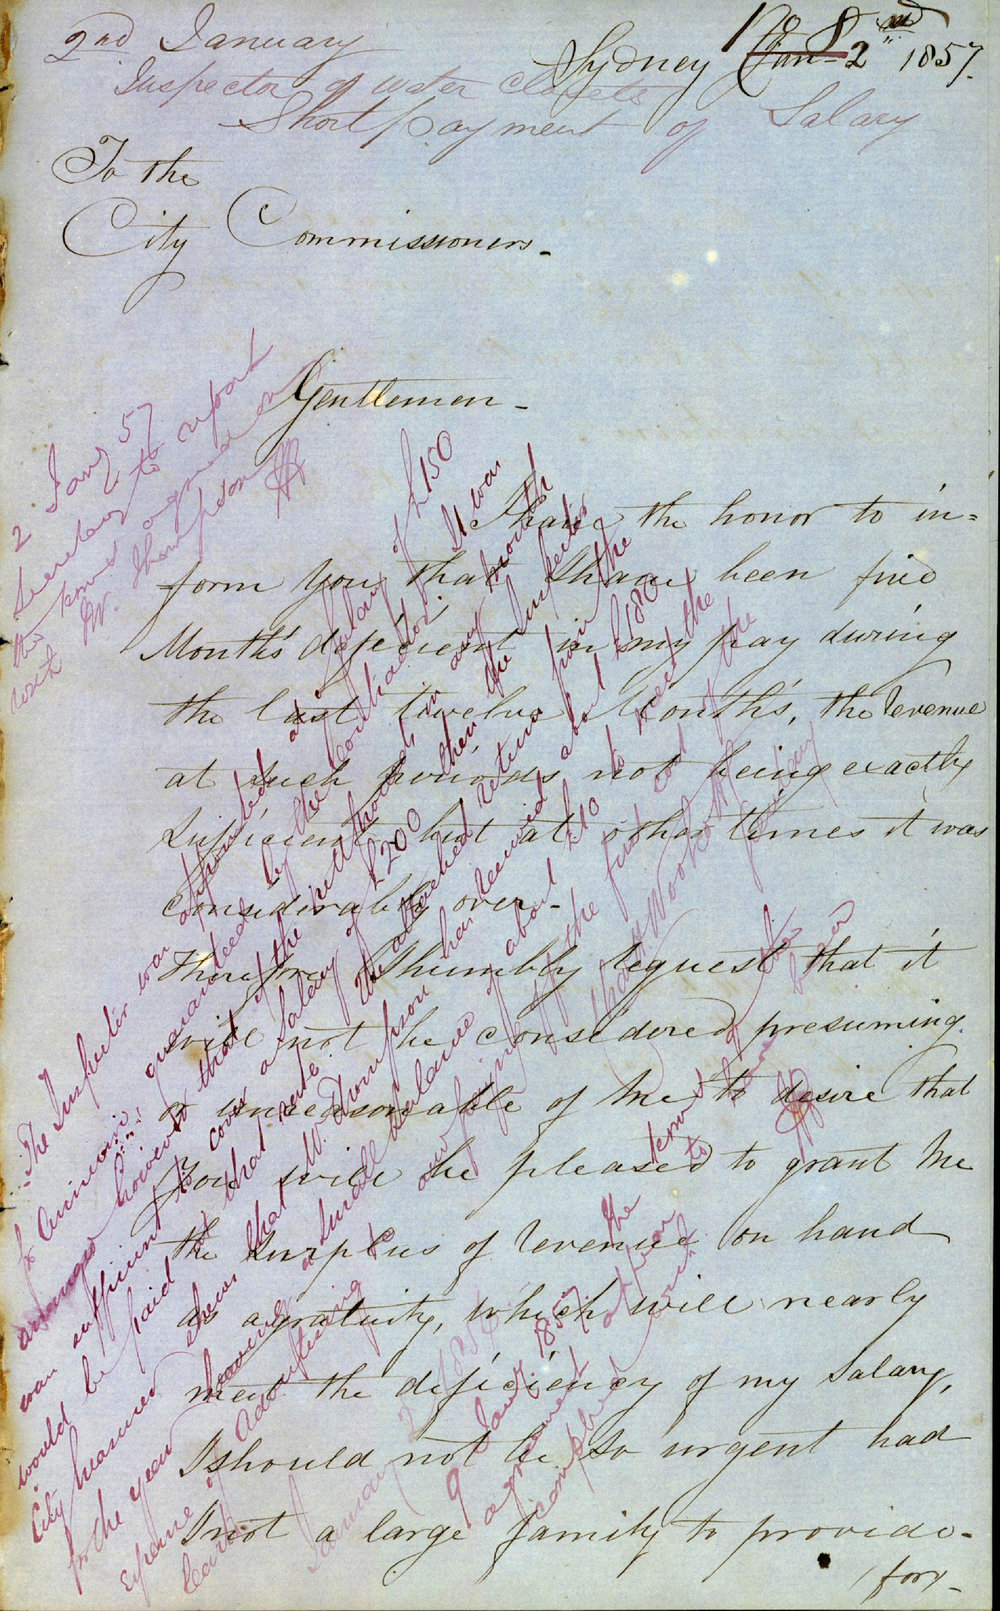 2nd January
Inspector of water closets
Short payment of Salary
No 8
Sydney Jan 2nd 1857.
To the
City Commissioners.
Gentlemen -
I have the honor to in=
form You that I have been five
Month's deficient in my pay during
the last twelve Month's, the revenue
at such periods not being exactly
sufficient but at other times it was
considerably over -
Therefore I humbly request that it
will not be considered presuming
or unreasonable of Me to desire that
You will be pleased to grant Me
the surplus of revenue on hand
as a gratuity, which will nearly
meet the deficiency of my Salary,
I should not be so urgent had
I not a large family to provide -
/ for, -
2 Jany 57
Secretary to report
the terms agreed on
with Mr. Thompson
The Inspector was appointed at a Salary of £150
guaranteed by the contractor. It was
arranged however that if the in any month
was sufficient to cover a Salary of £200 then the Inspector
would be paid at that rate. The attached return from the
City Treasurer shews that Mr. Thompson has received about £180
for the year leaving a small balance of about £10 to meet the
expense of advertising
January 2 1857
9 Jany 1857 The terms of the
agreement appear to have been
complied with